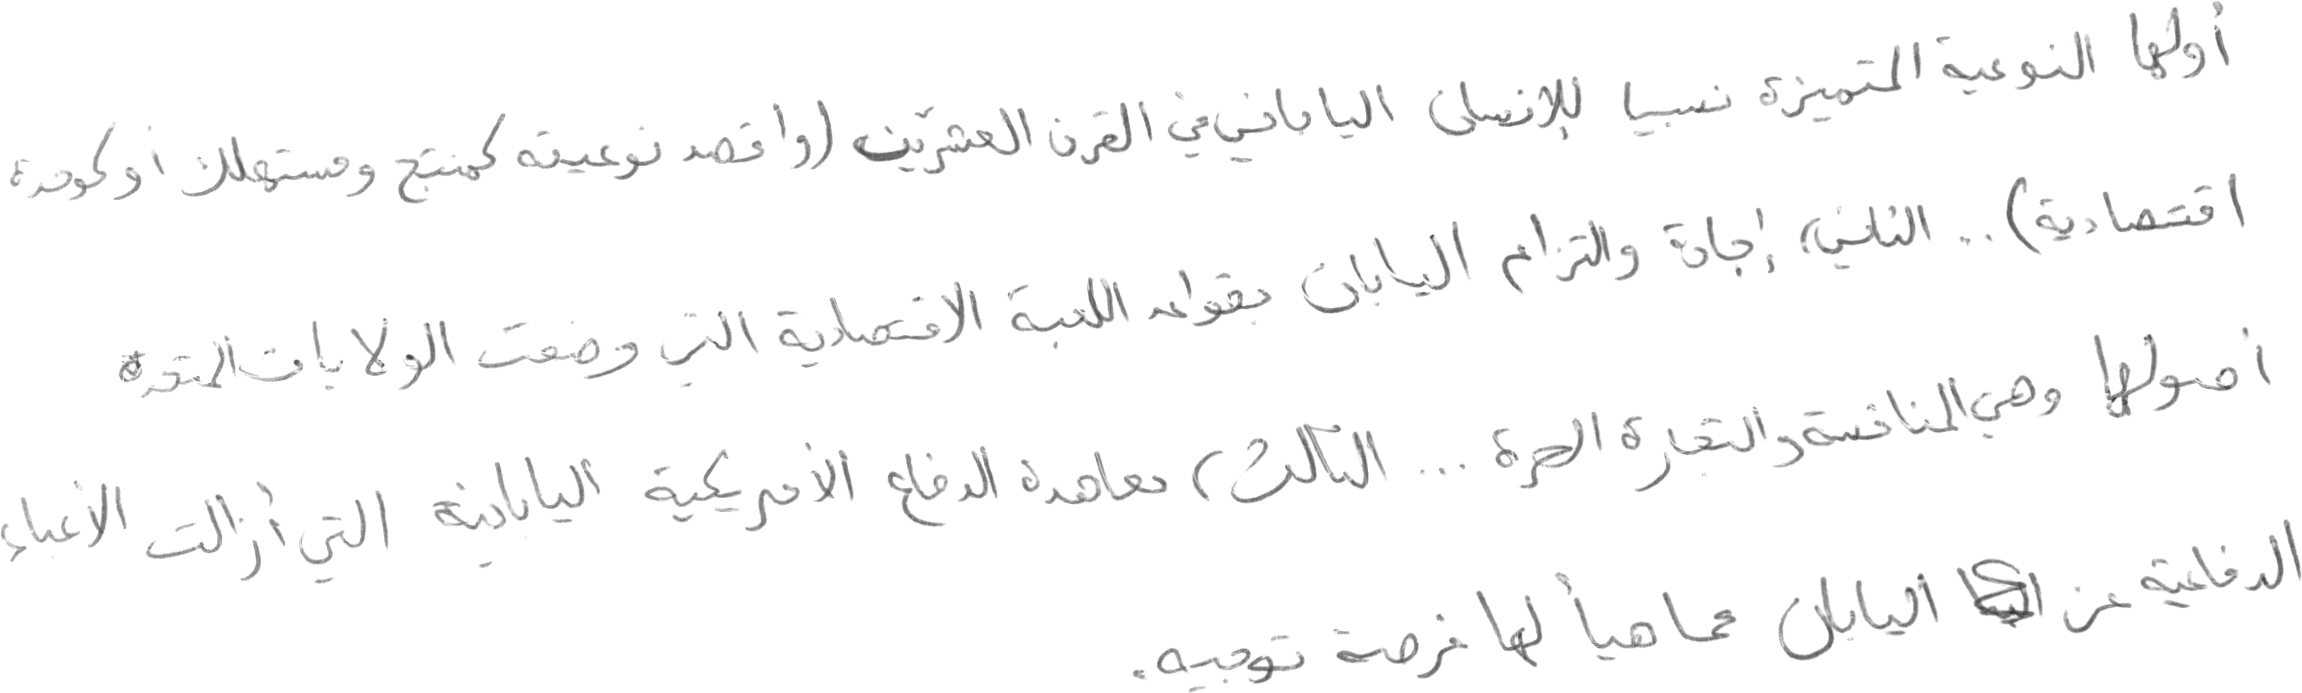 أولها النوعية المتميزة نسبيا للإنسان الياباني في القرن العشرين (وأقصد نوعيته كمنتج ومستهلك أو كوحدة
اقتصادية).. الثاني، إجادة والتزام اليابان بقواعد اللعبة الاقتصادية التي وضعت الولايات المتحدة
أصولها وهي المنافسة والتجارة الحرة ... الثالث، معاهدة الدفاع الأمريكية اليابانية التي أزالت الأعباء
الدفاعية عن اليابان مما هيأ لها فرصة توجيه.